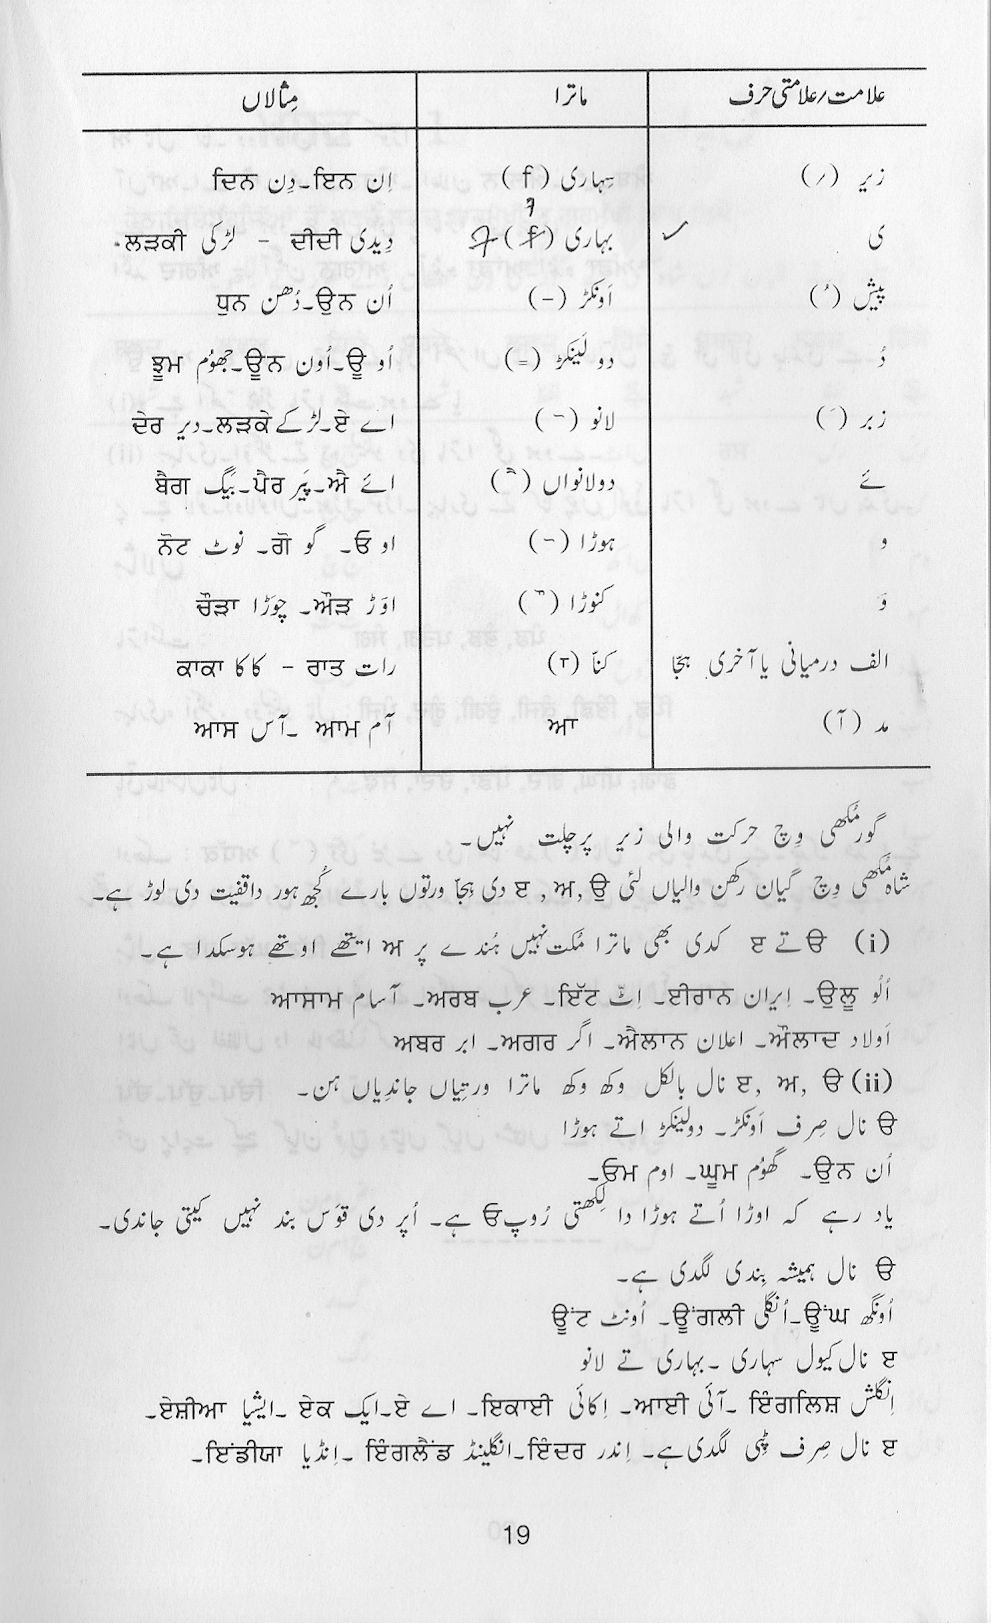 علامت/علامتی حرف ماترا مِثالاں
زیر (ِ) سِہاری (ਿ) اِن ਇਨ۔دِن ਦਿਨ
ی ✓ بہاری (ੀ) ੀ دِیدی ਦੀਦੀ - لڑکی ਲੜਕੀ۔
پیش (ُ) اَونکڑ (–) اُن ਉਨ۔دُھن ਧੁਨ
دُو لَینکڑ (=) اُو ਊ۔اُون ਊਨ۔جھوُم ਝੂਮ
زبر (َ) لانو (¯) اے ਏ۔لڑکے ਲੜਕੇ۔دیر ਦੇਰ
ئے دولانواں (ੈ) ائے ਐ۔پَیر ਪੈਰ۔بَیگ ਬੈਗ
و ہوڑا (~) او ਓ۔ گو ਗੋ۔ نوٹ ਨੋਟ
وَ کنوڑا (ੌ) اوَڑ ਔੜ۔ چوَڑا ਚੌੜਾ
الف درمیانی یا آخری ہجّا کنّا (ਾ) رات ਰਾਤ - کاکا ਕਾਕਾ
مد (آ) ਆ آم ਆਮ ۔آس ਆਸ
گورمُکھی وِچ حرکت والی زیر پرچلت نہیں۔
شاہ مُکھی وِچ گیان رکھن والیاں لئی ੳ ,ਅ , ੲ دی ہِجّا ورتوں بارے کُجھ ہور واقفیت دی لوڑ ہے۔
(i) ੳ تے ੲ کدی بھی ماترا مُکت نہیں ہُندے پر ਅ ایتھے اوتھے ہوسکدا ہے۔
اُلُو ਉਲੂ۔ اِیران ਈਰਾਨ۔ اِٹّ ਇੱਟ۔ عرب ਅਰਬ۔ آسام ਆਸਾਮ
اَولاد ਔਲਾਦ۔ اعلان ਐਲਾਨ۔ اگر ਅਗਰ۔ ابر ਅਬਰ
(ii) ੳ ,ਅ ,ੲ نال بالکل وکھ وکھ ماترا ورتِیاں جاندِیاں ہن۔
ੳ نال صِرف اَونکڑ۔ دولَینکڑ اتے ہوڑا
اُن ਉਨ۔ گھوُم ਘੂਮ۔ اوم ਓਮ۔
یاد رہے کہ اوڑا اُتے ہوڑا دا لِکھتی رُوپ ਓ ہے۔ اُپر دی قوَس بند نہیں کیتی جاندی۔
ੳ نال ہمیشہ بِندی لگدی ہے۔
اُونگھ ਊਂਘ۔اُنگلی ਊਂਗਲੀ۔ اُونٹ ਊਂਟ
ੲ نال کیول سہاری ۔بہاری تے لانو
اِنگلش ਇੰਗਲਿਸ਼ ۔آئی ਆਈ۔ اِکائی ਇਕਾਈ۔ اے ਏ۔ایک ਏਕ ۔ایشیا ਏਸ਼ੀਆ۔
ੲ نال صِرف ٹِپی لگدی ہے۔ اِندر ਇੰਦਰ۔انگلینڈ ਇੰਗਲੈਂਡ ۔اِنڈیا ਇੰਡੀਯਾ۔
19